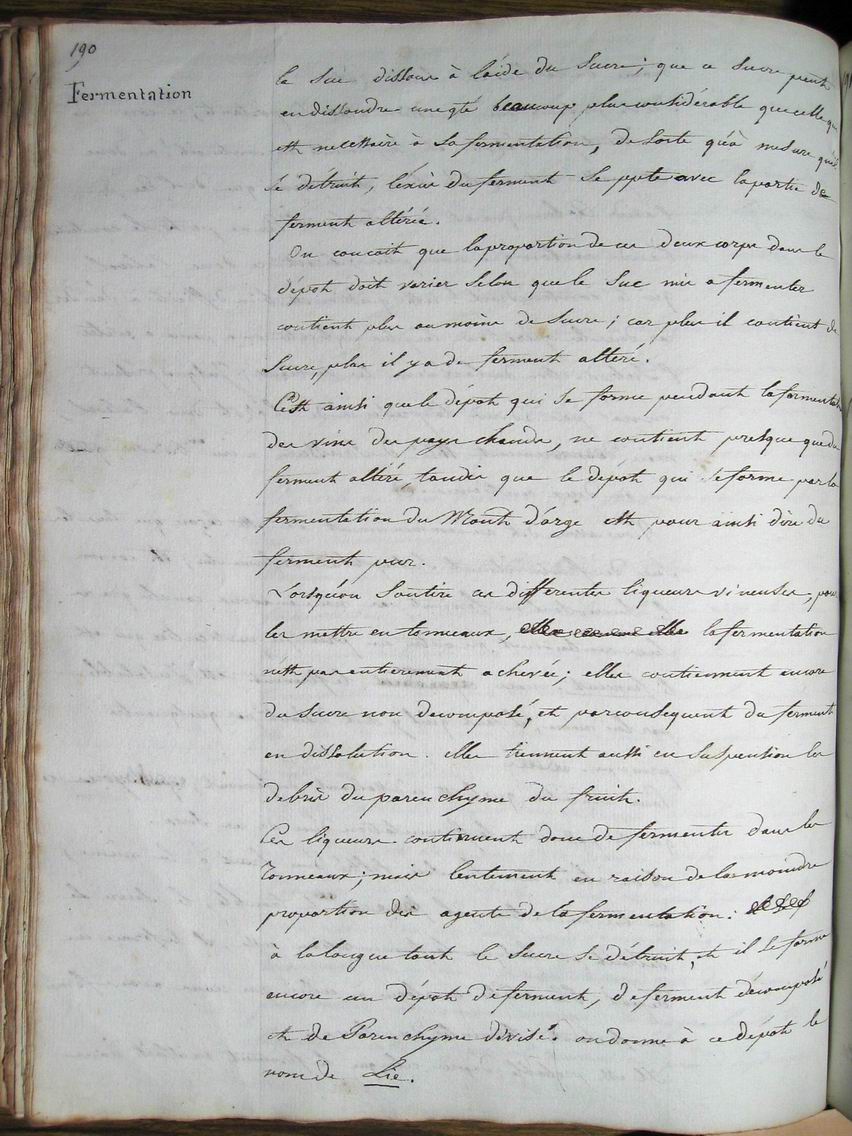 190
Fermentation
le suc dissous à l'aide du sucre; que ce sucre peut
en dissoudre une qté beaucoup plus considérable que celle qui
est necessaire à sa fermentation, de sorte qu'à mesure qu'il
se détruit, l'exès du ferment se ppte avec la partie de
ferment altéré.
On conçoit que la proportion de ces deux corps dans le
dépot doit varier selon que le suc mis a fermenter
contient plus ou moins de sucre; car plus il contient de
sucre, plus il y a de ferment altéré.
C'est ainsi que le dépot qui se forme pendant la fermentation
des vins des pays chauds, ne contient presque que du
ferment altéré, tandis que le dépot qui se forme par la
fermentation du Mout d'orge est pour ainsi dire du
ferment pur.
Lorsqu'on soutire ces differentes liqueurs vineuses, pour
les mettre en tonneaux, la fermentation
n'est pas entierement achevée; elles contiennent encore
du sucre non decomposé, et par consequent du ferment
en dissolution. elles tiennent aussi en suspention les
debris du parenchyme du fruit.
Ces liqueurs continuent donc de fermenter dans les
Tonneaux; mais lentement en raison de la moindre
proportion des agents de la fermentation.
à la longue tout le sucre se détruit, et il se forme
encore un dépot de ferment, de ferment décomposé
et de Parenchyme divisé. on donne à ce dépot le
nom de Lie.